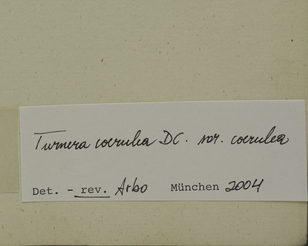 Turnera coerulea DC. var. coerulea
Det. - rev. Arbo München 2004